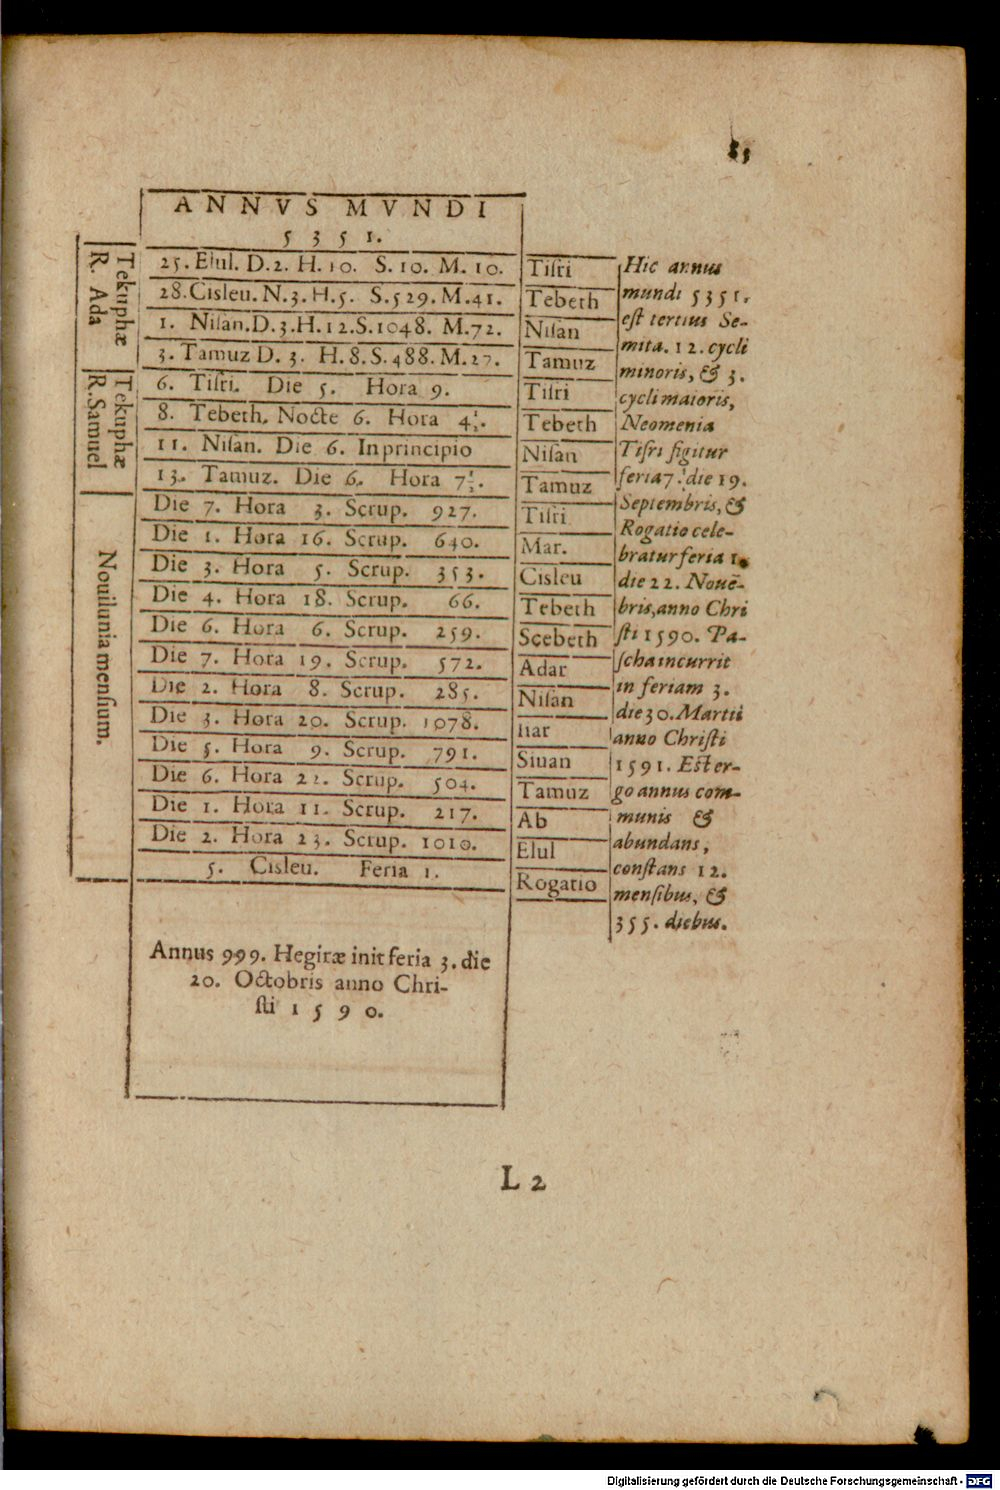 83
ANNVS MVNDI
5351.
Tekuphæ
R. Ada
25. Elul. D.2. H.10. S.10. M.10. Tiſri
28. Cisleu. N.3. H.5. S.529. M.41. Tebeth
1. Niſan. D.3. H.12. S.1048. M.72. Niſan
3. Tamuz D. 3. H.8. S.488. M.27. Tamuz
Tekuphæ
R. Samuel
6. Tiſri. Die 5. Hora 9. Tiſri
8. Tebeth. Nocte 6. Hora 4½. Tebeth
11. Niſan. Die 6. In principio Niſan
13. Tamuz. Die 6. Hora 7½. Tamuz
Nouilunia menſium.
Die 7. Hora 3. Scrup. 927. Tiſri
Die 1. Hora 16. Scrup. 640. Mar.
Die 3. Hora 5. Scrup. 353. Cisleu
Die 4. Hora 18. Scrup. 66. Tebeth
Die 6. Hora 6. Scrup. 259. Scebeth
Die 7. Hora 19. Scrup. 572. Adar
Die 2. Hora 8. Scrup. 285. Niſan
Die 3. Hora 20. Scrup. 1078. Iiar
Die 5. Hora 9. Scrup. 791. Siuan
Die 6. Hora 22. Scrup. 504. Tamuz
Die 1. Hora 11. Scrup. 217. Ab
Die 2. Hora 23. Scrup. 1010. Elul
5. Cisleu. Feria 1. Rogatio
Annus 999. Hegiræ init feria 3. die
20. Octobris anno Chri-
ſti 1590.
Hic annus
mundi 5351.
eſt tertius Se-
mita. 12. cycli
minoris, & 3.
cycli maioris,
Neomenia
Tiſri figitur
feria 7. die 19.
Septembris, &
Rogatio cele-
bratur feria 1.
die 22. Nouē-
bris, anno Chri
ſti 1590. Pa-
ſcha incurrit
in feriam 3.
die 30. Martii
anno Chriſti
1591. Eſt er-
go annus com-
munis &
abundans,
conſtans 12.
menſibus, &
355. diebus.
L 2
Digitalisierung gefördert durch die Deutsche Forschungsgemeinschaft - DFG